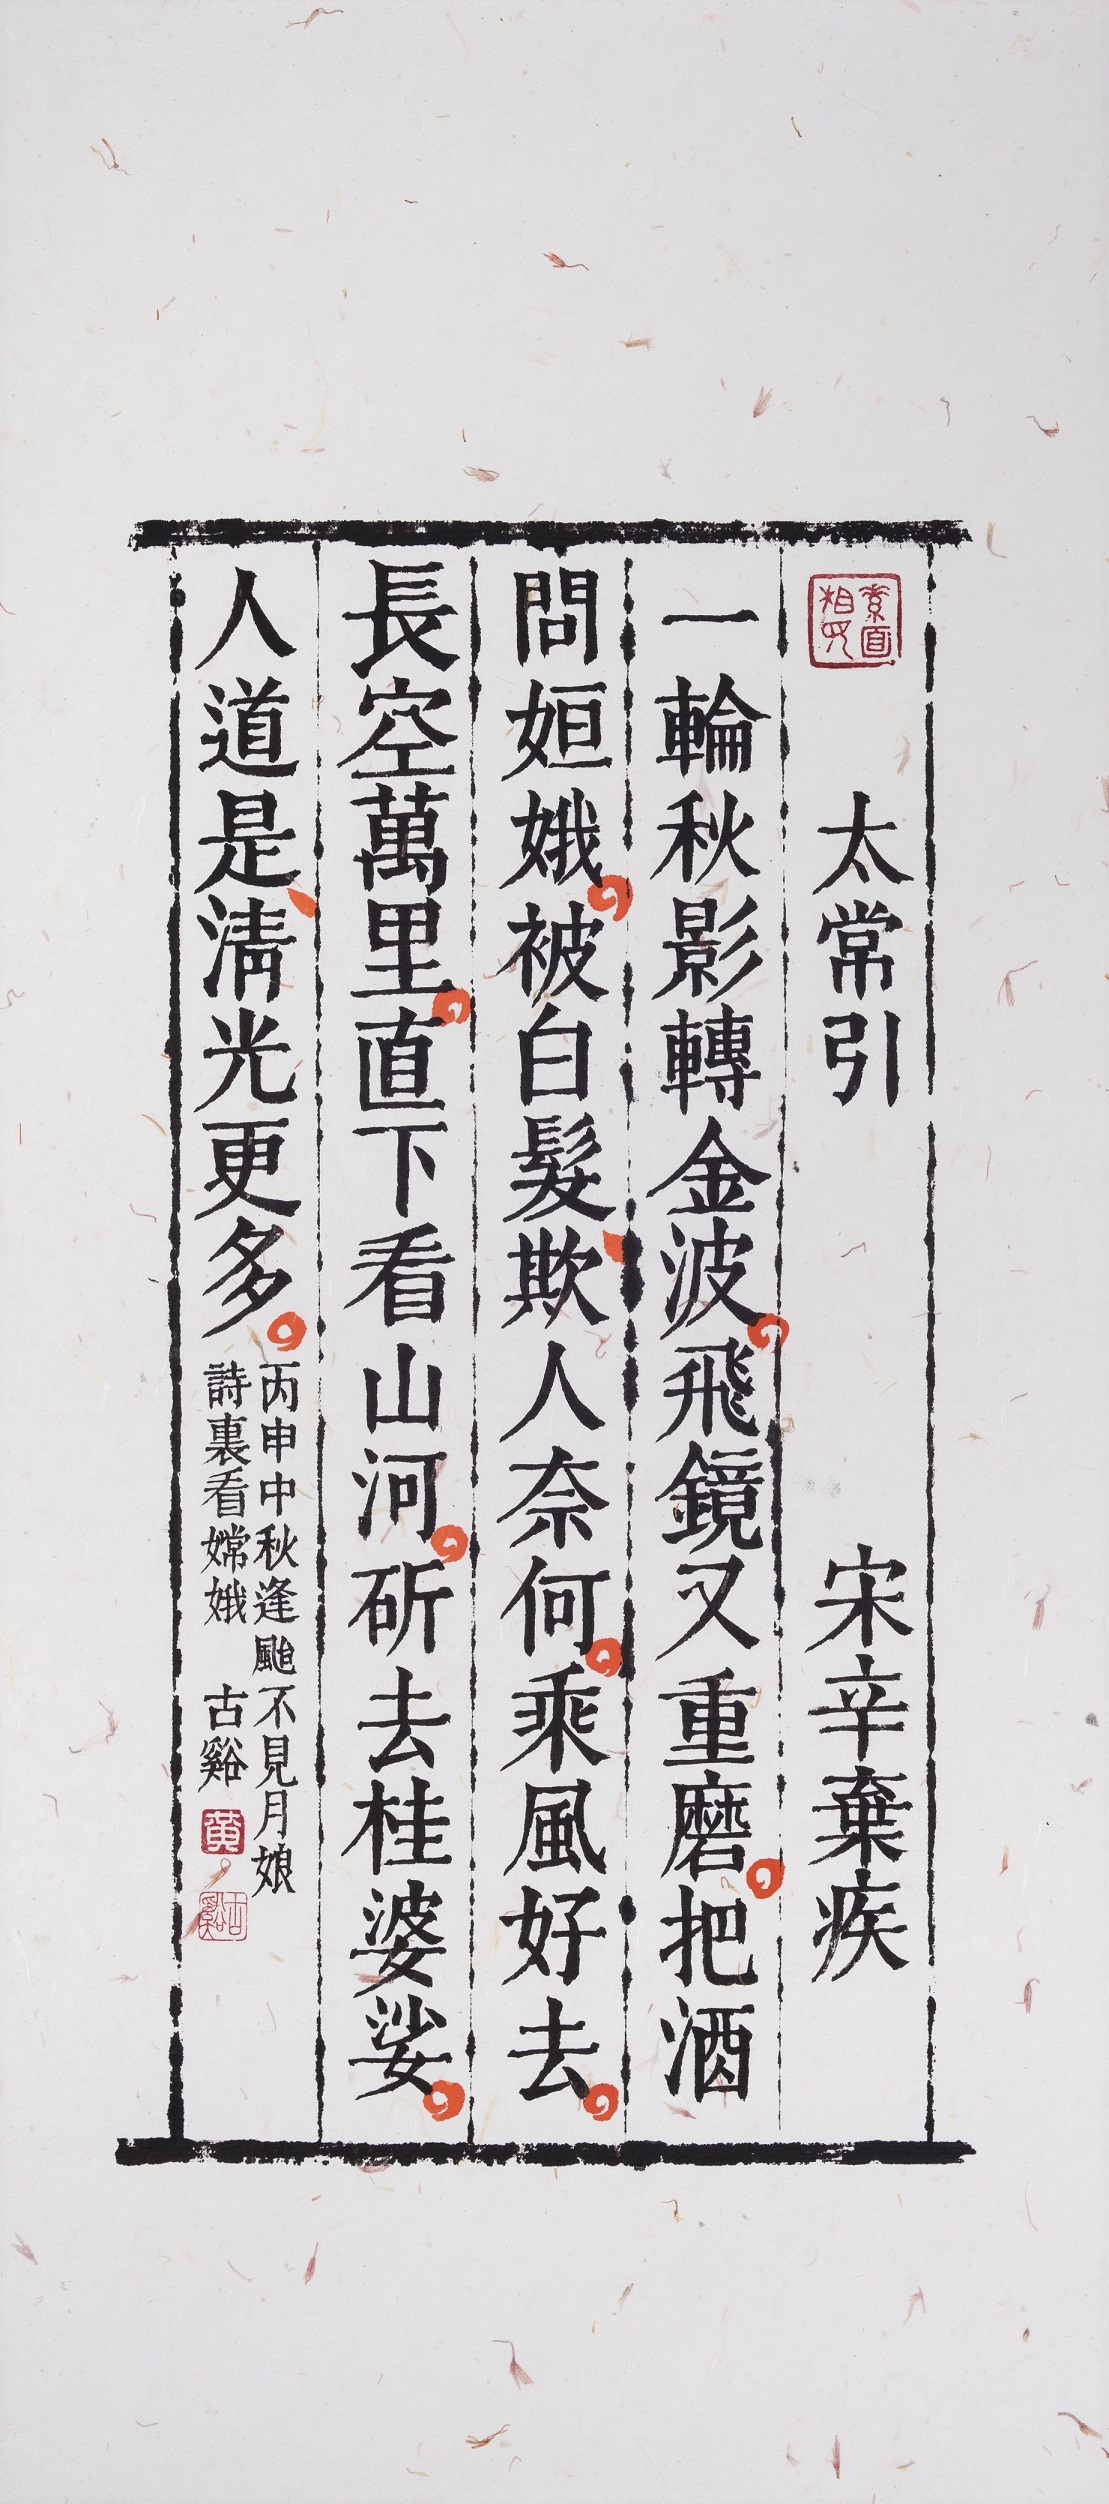 素面相見
太常引 宋辛棄疾
一輪秋影轉金波飛鏡又重磨把酒
問姮娥被白髮欺人奈何乘風好去
長空萬里直下看山河斫去桂婆娑
人道是清光更多
丙申中秋逢颱不見月娘
詩裏看嫦娥 古谿
黃
古谿